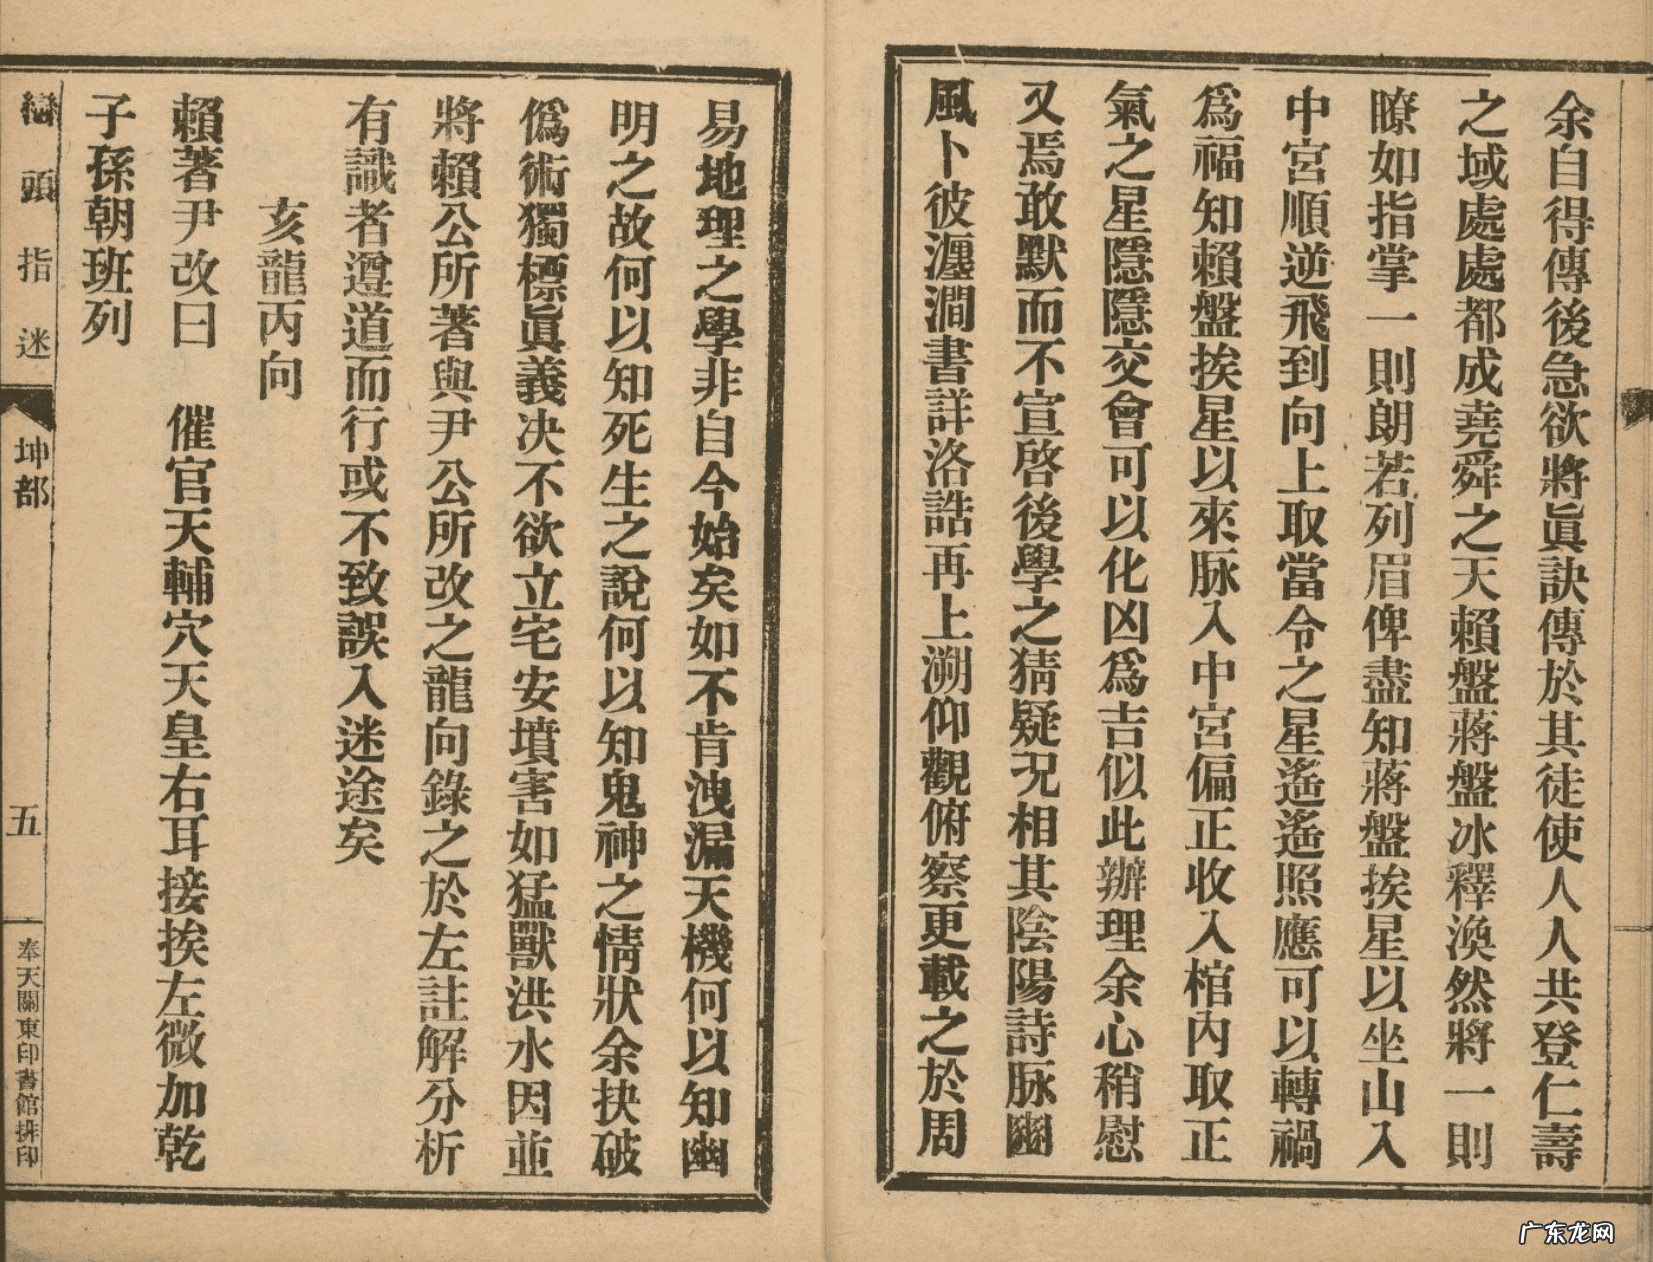 余自得傳後急欲將眞訣傳於其徒使人人共登仁壽
之域處處都成堯舜之天賴盤蔣盤冰釋渙然將一則
瞭如指掌一則朗若列眉俾盡知蔣盤挨星以坐山入
中宮順逆飛到向上取當令之星遙遙照應可以轉禍
爲福知賴盤挨星以來脉入中宮偏正收入棺內取正
氣之星隱隱交會可以化凶爲吉似此辦理余心稍慰
又焉敢默而不宣啓後學之猜疑況相其陰陽詩脉豳
風卜彼瀍澗書詳洛誥再上溯仰觀俯察更載之於周
易地理之學非自今始矣如不肯洩漏天機何以知幽
明之故何以知死生之說何以知鬼神之情狀余抉破
僞術獨標眞義决不欲立宅安墳害如猛獸洪水因並
將賴公所著與尹公所改之龍向錄之於左註解分析
有識者遵道而行或不致誤入迷途矣
亥龍丙向
賴著尹改曰 催官天輔穴天皇右耳接挨左微加乾
子孫朝班列
巒頭指迷
坤部
五
奉天關東印書館排印
广东龙网